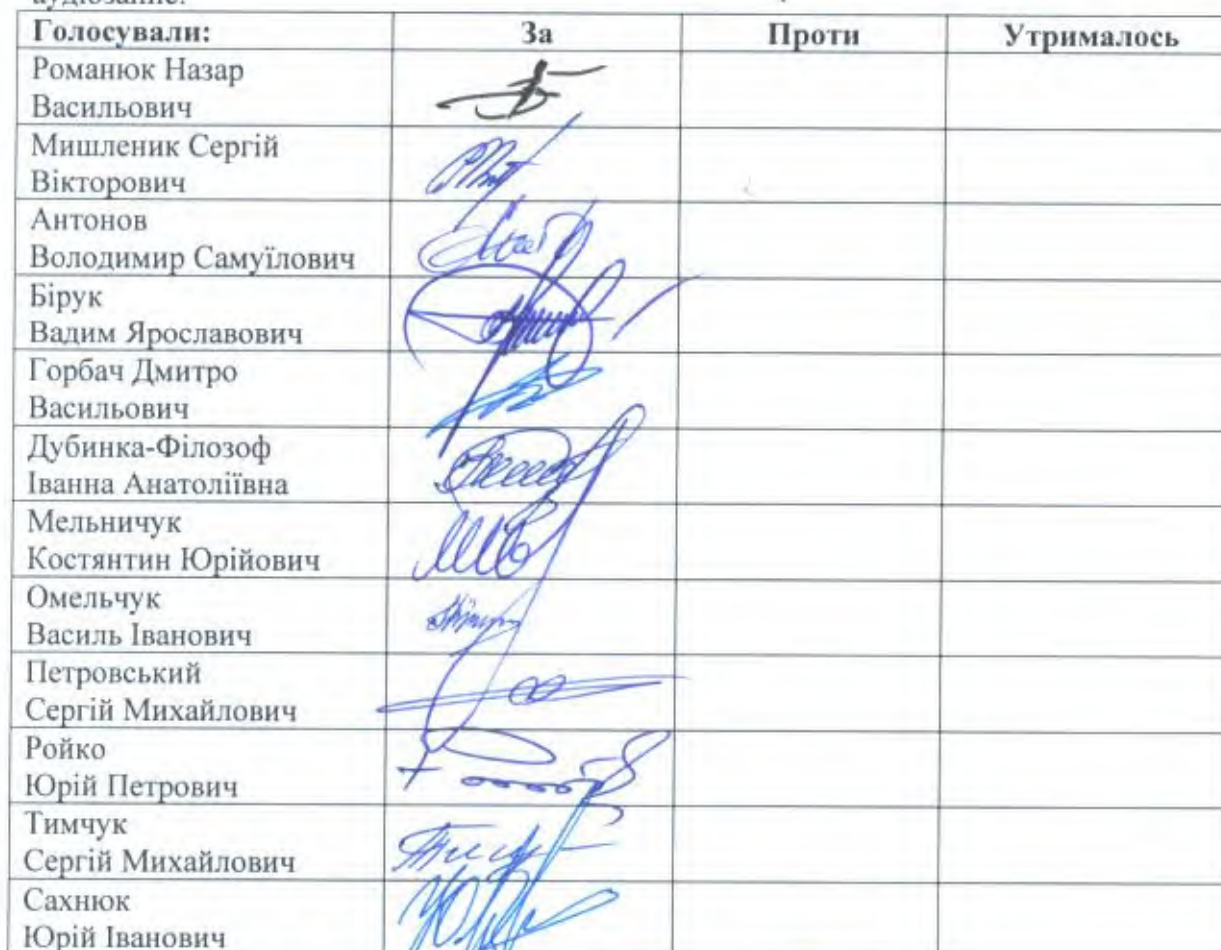 аудіозапис.
Голосували: За Проти Утрималось
Романюк Назар
Васильович
Мишленик Сергій
Вікторович
Антонов
Володимир Самуїлович
Бірук
Вадим Ярославович
Горбач Дмитро
Васильович
Дубинка-Філозоф
Іванна Анатоліївна
Мельничук
Костянтин Юрійович
Омельчук
Василь Іванович
Петровський
Сергій Михайлович
Ройко
Юрій Петрович
Тимчук
Сергій Михайлович
Сахнюк
Юрій Іванович